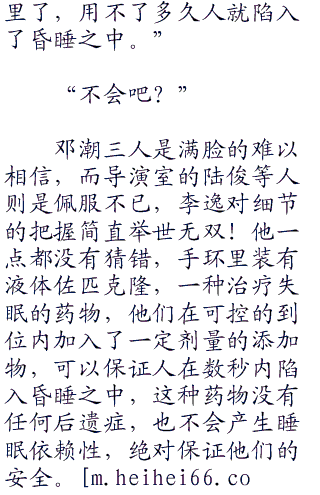 里了，用不了多久人就陷入
了昏睡之中。”
“不会吧？”
邓潮三人是满脸的难以
相信，而导演室的陆俊等人
则是佩服不已，李逸对细节
的把握简直举世无双！他一
点都没有猜错，手环里装有
液体佐匹克隆，一种治疗失
眠的药物，他们在可控的到
位内加入了一定剂量的添加
物，可以保证人在数秒内陷
入昏睡之中，这种药物没有
任何后遗症，也不会产生睡
眠依赖性，绝对保证他们的
安全。[m.heihei66.co